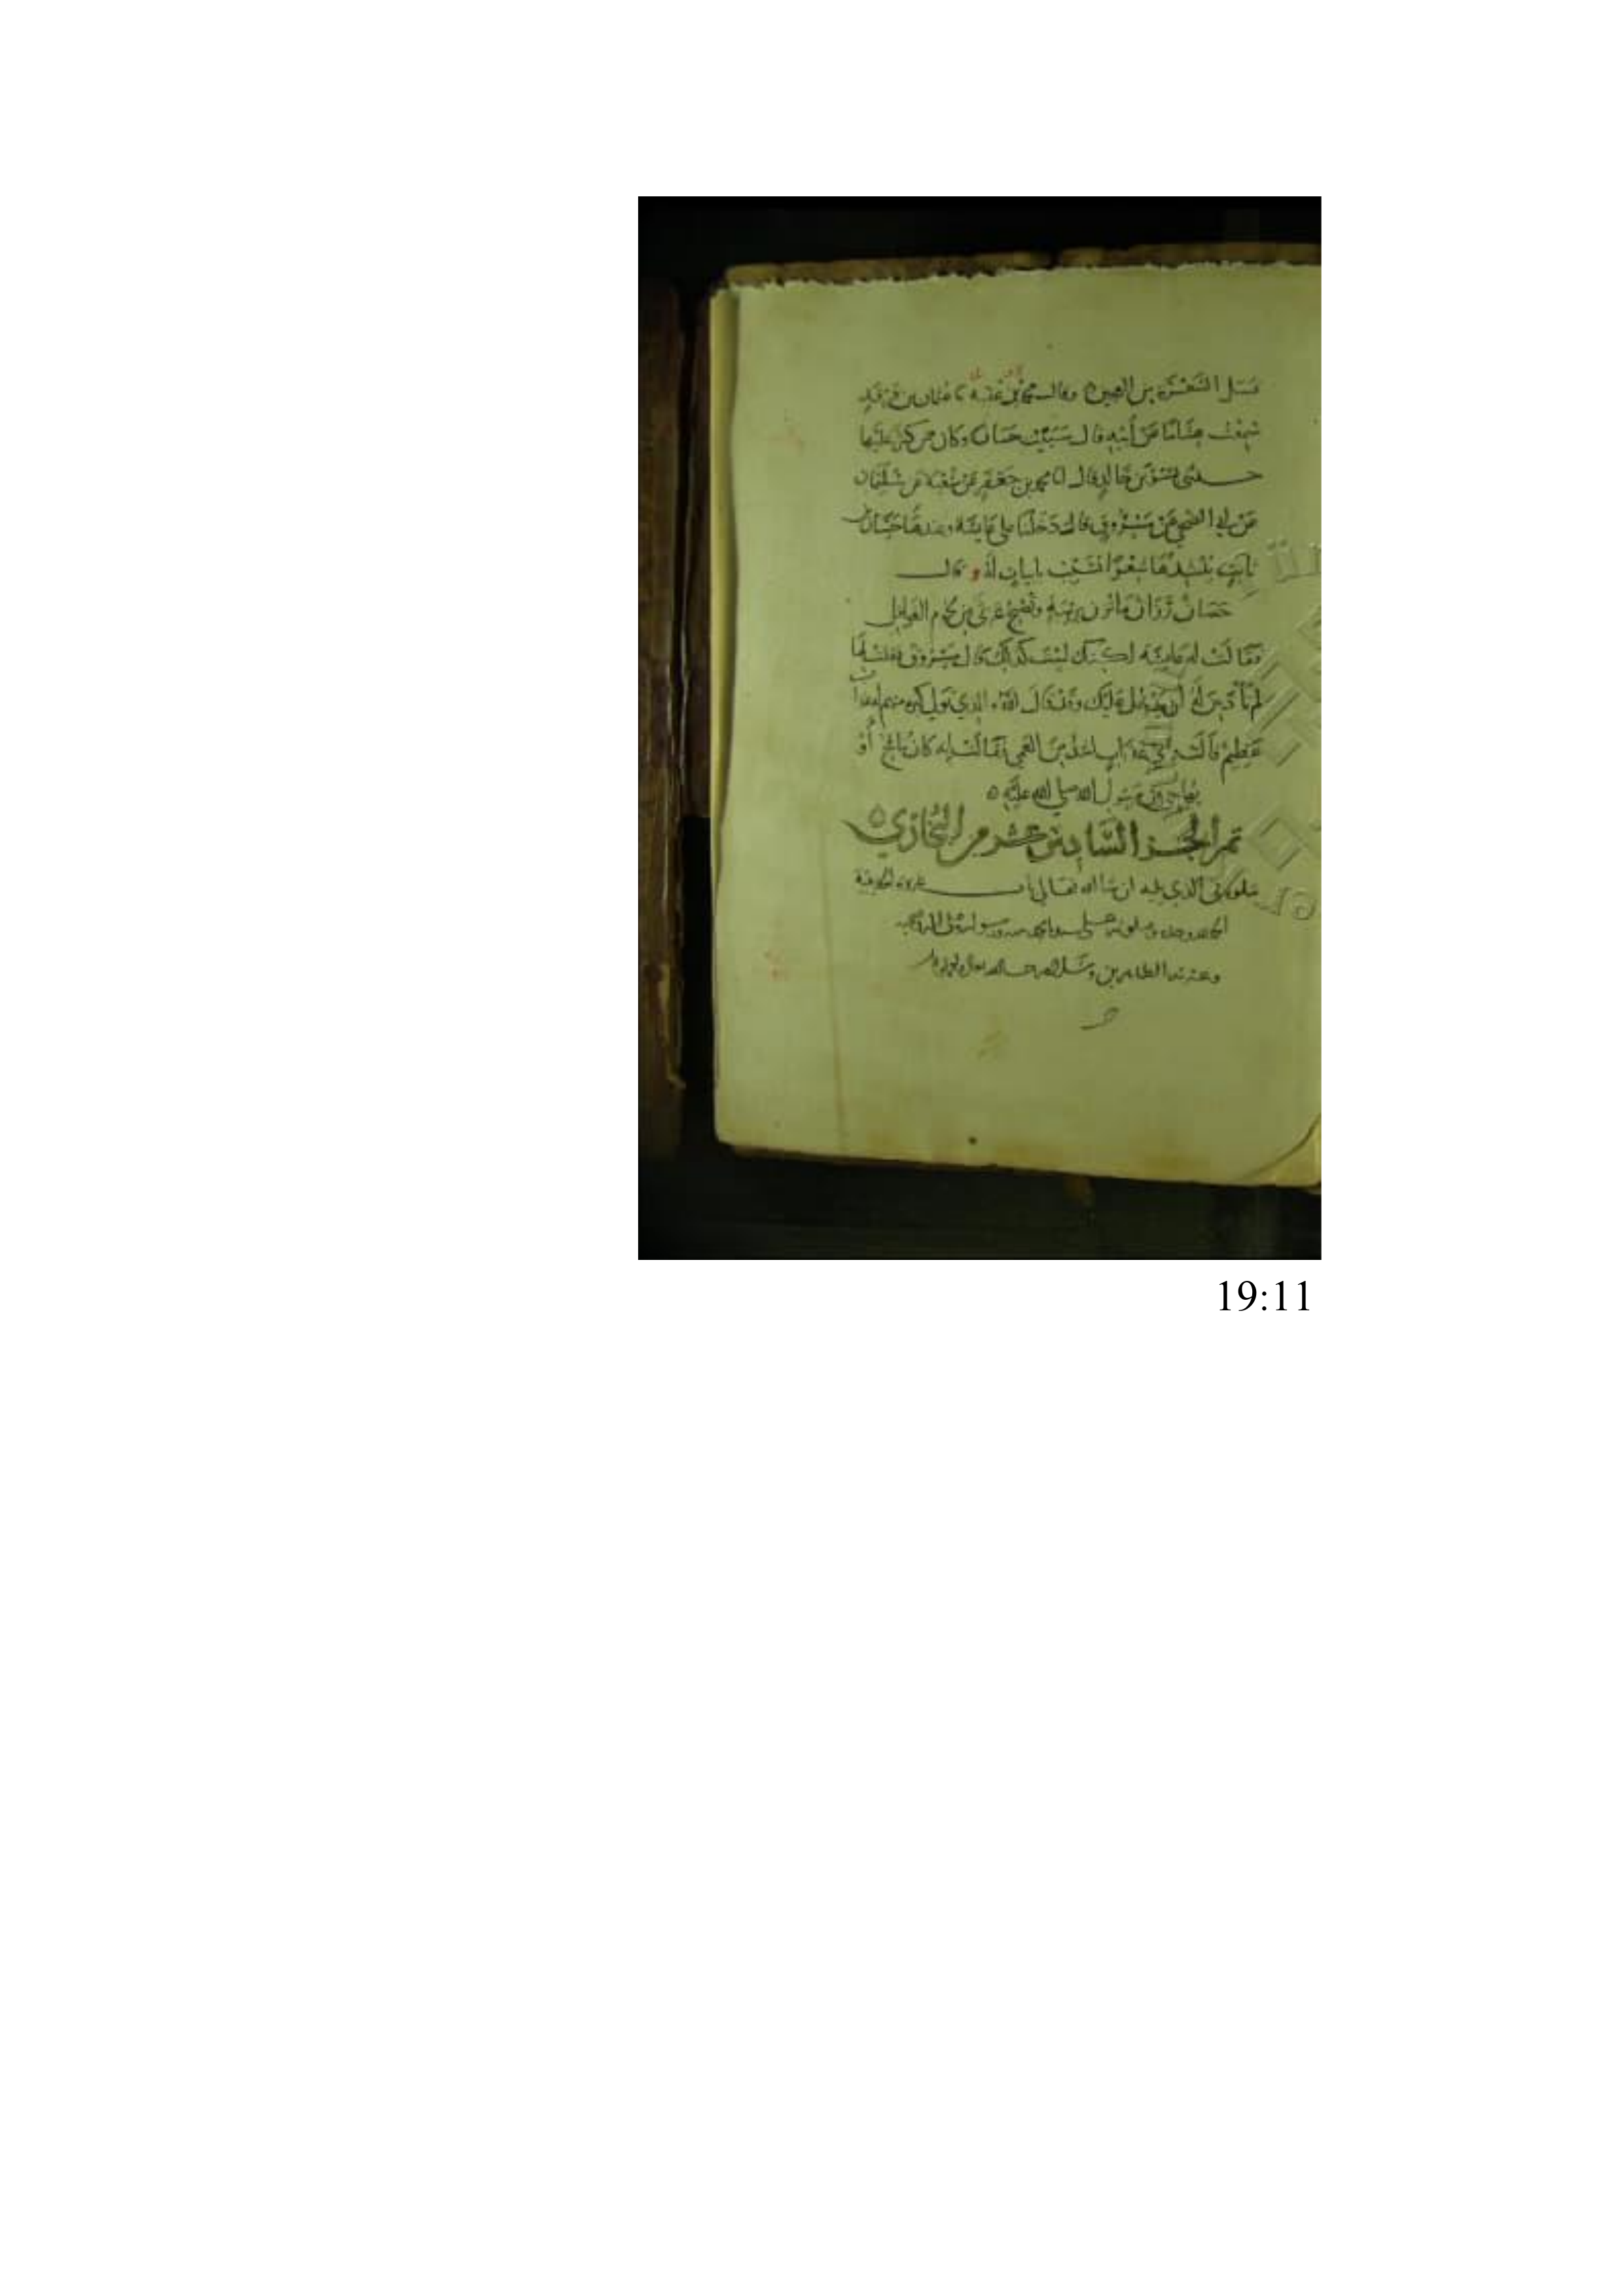 تسل الشعرة من العجين وقال محمد بن عقبة نا عثمان بن فرقد
سمعت هشاما عن أبيه قال سببت حسان وكان ممن كثر عليها
حدثني بشر بن خالد قال انا محمد بن جعفر عن شعبة عن سليمان
عن ابي الضحى عن مسروق قال دخلنا على عايشة وعندها حسان بن
ثابت ينشدها شعرا يشبب بابيات له وقال
حصان رزان ما تزن بريبة وتصبح غرثى من لحوم الغوافل
فقالت له عايشة لكنك لست كذلك قال مسروق فقلت لها
لم تأذنين له أن يدخل عليك وقد قال الله والذي تولى كبره منهم له عذاب
عظيم قالت واي عذاب اشد من العمى فقالت إنه كان ينافح أو
يهاجي عن رسول الله صلى الله عليه
تم الجزء السادس عشر من البخاري
يتلوه في الذي يليه ان شا الله تعالى باب غزوة الحديبية
الحمد لله وحده وصلوته على
وعترته الطاهرين وسلم
19:11